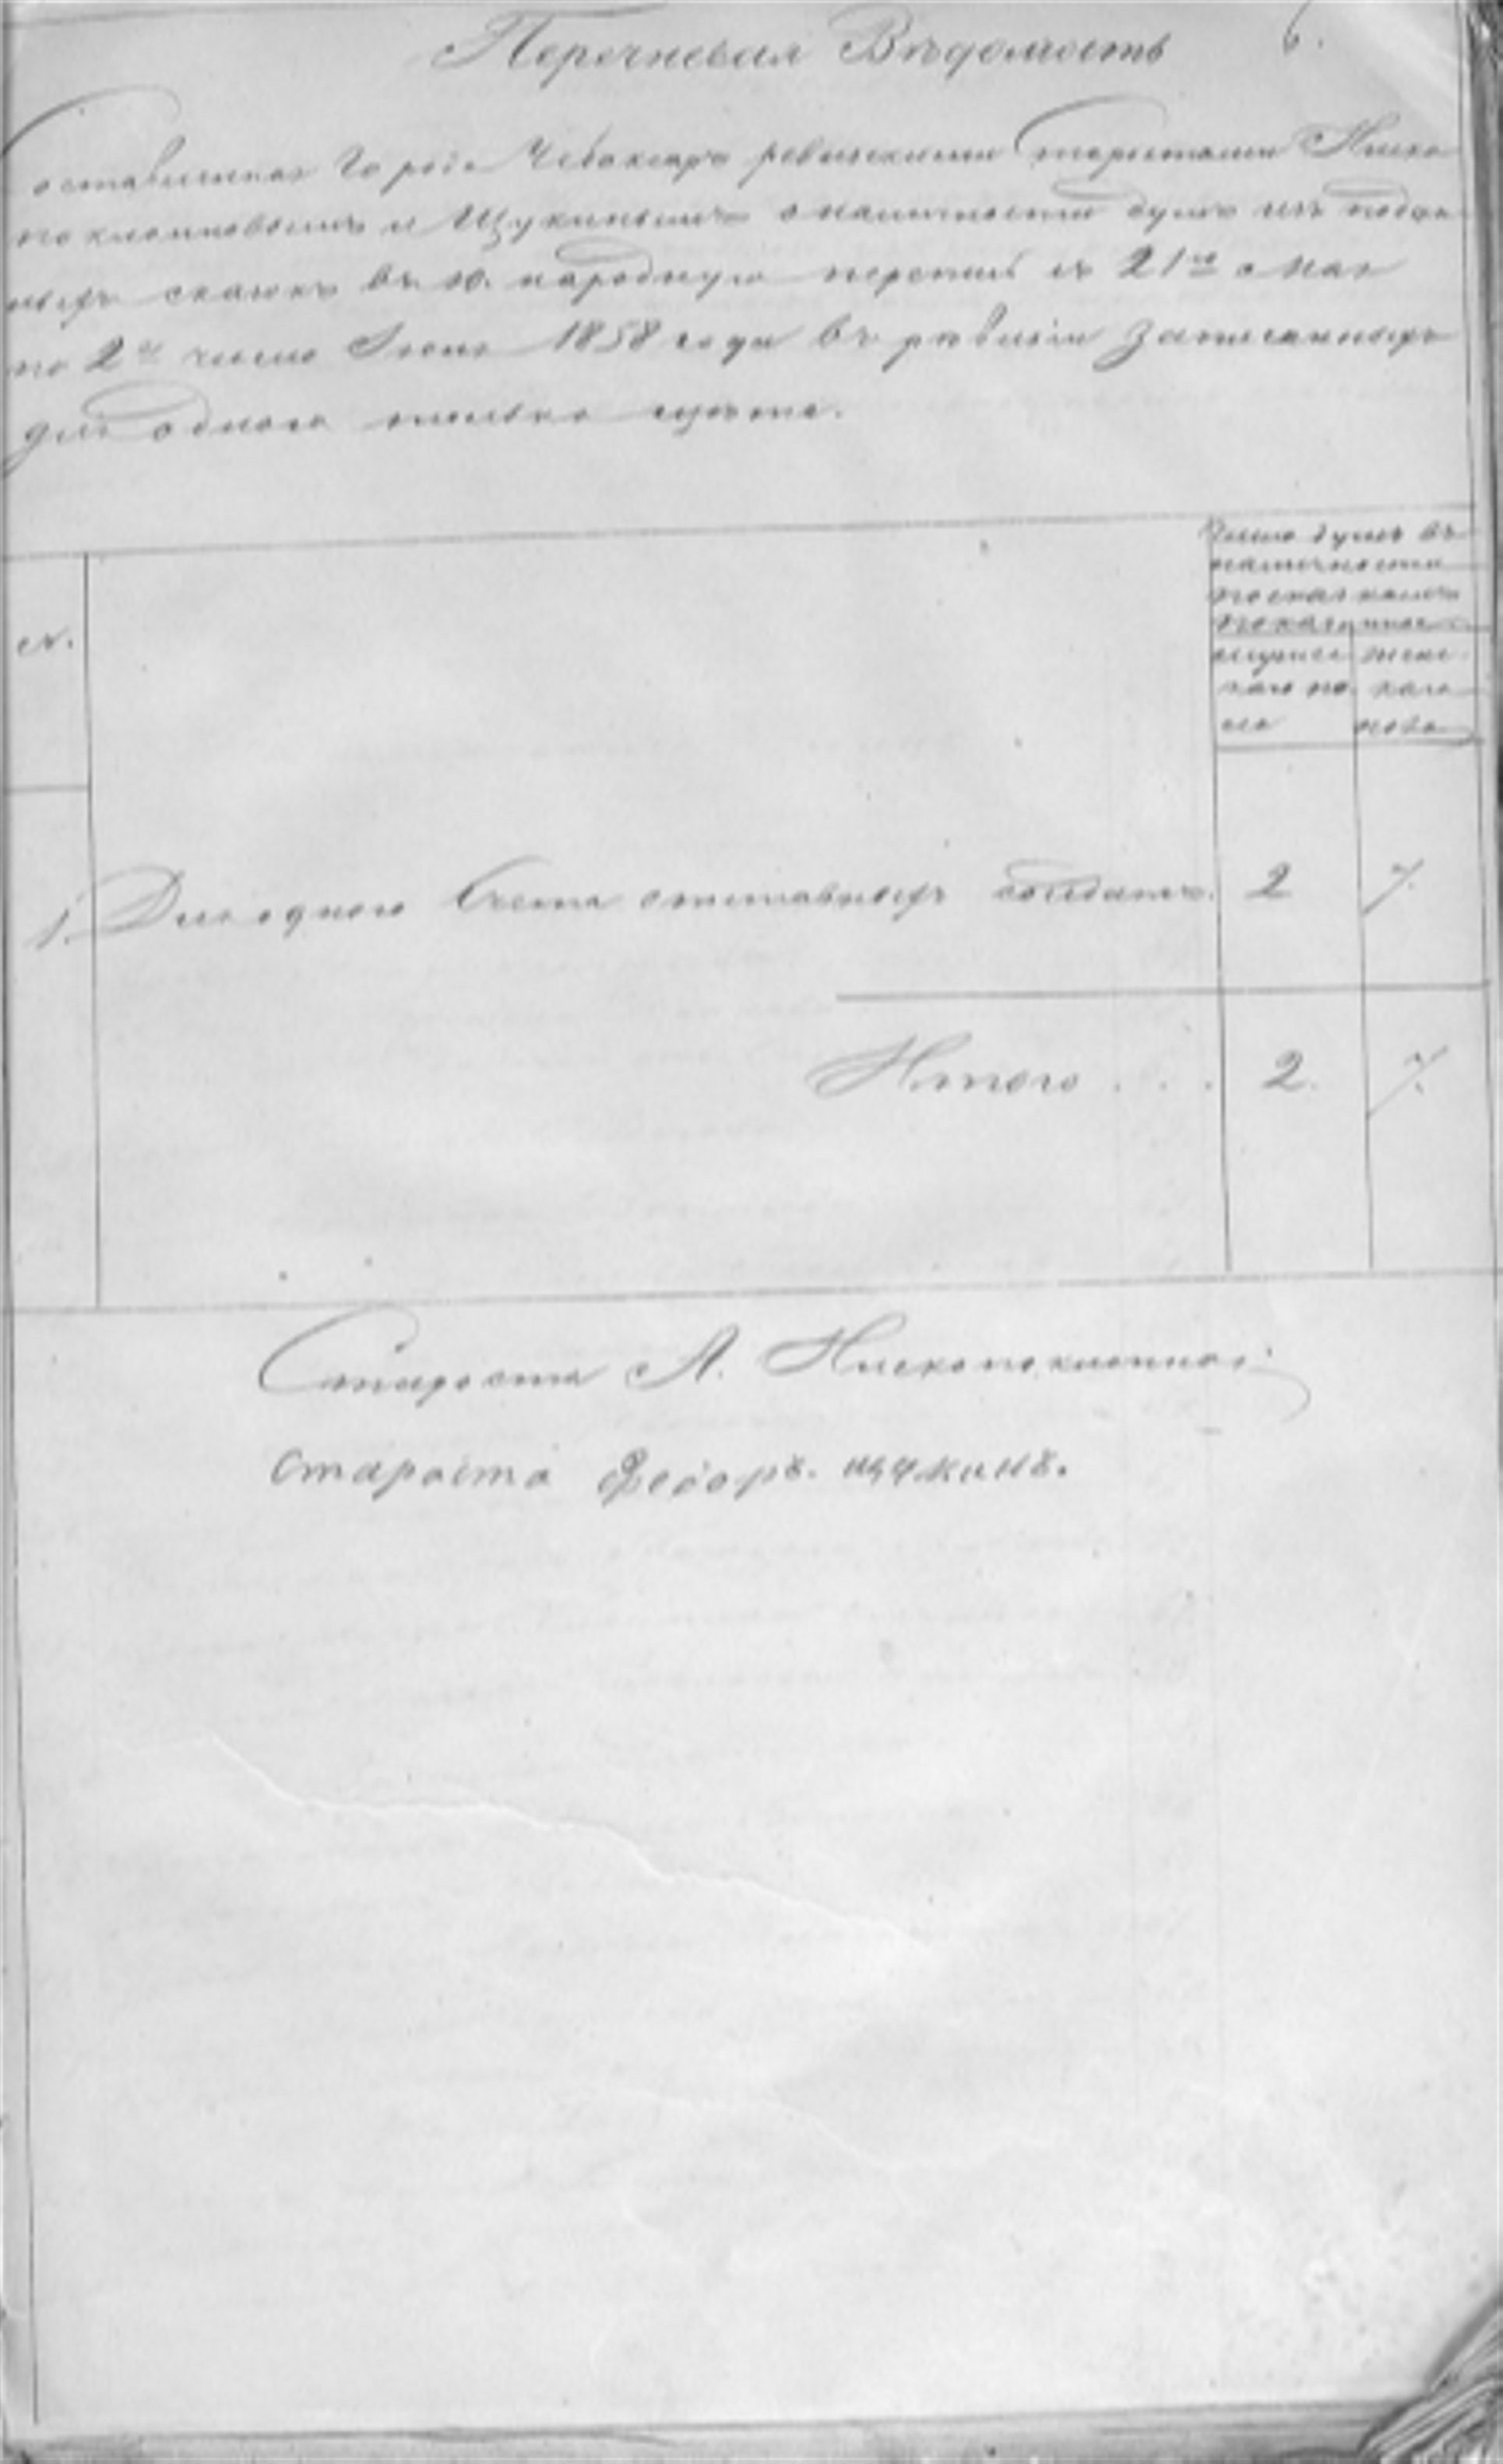 Перечневая Вѣдомость 6.
Составленная Города Чебоксаръ ревизскими Старостами Низко
поклонновымъ и Щукинымъ о наличности душъ изъ подан
ныхъ сказокъ въ 10. народную перепись съ 21го Мая
по 2е число Іюня 1858 года въ ревизіи записанныхъ
для одного только счета.
Число душъ въ
наличности
по сказкамъ
показанное
N.
мужес женс
каго по каго
ла пола
1. Для одного счета отставныхъ солдатъ. 2 7.
Итого . . . 2. 7.
Староста А. Низкопоклонно
староста Федоръ. щукинъ.